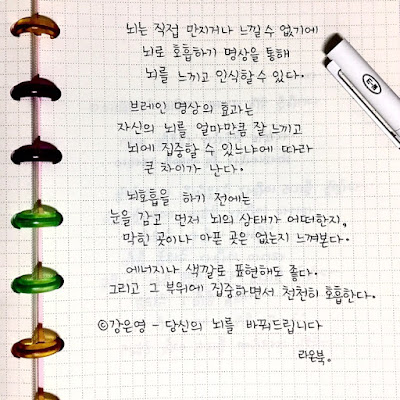 뇌는 직접 만지거나 느낄 수 없기에
뇌로 호흡하기 명상을 통해
뇌를 느끼고 인식할 수 있다.
브레인 명상의 효과는
자신의 뇌를 얼마만큼 잘 느끼고
뇌에 집중할 수 있느냐에 따라
큰 차이가 난다.
뇌호흡을 하기 전에는
눈을 감고 먼저 뇌의 상태가 어떠한지,
막힌 곳이나 아픈 곳은 없는지 느껴본다.
에너지나 색깔로 표현해도 좋다.
그리고 그 부위에 집중하면서 천천히 호흡한다.
©강은영 - 당신의 뇌를 바꿔드립니다
라온북.